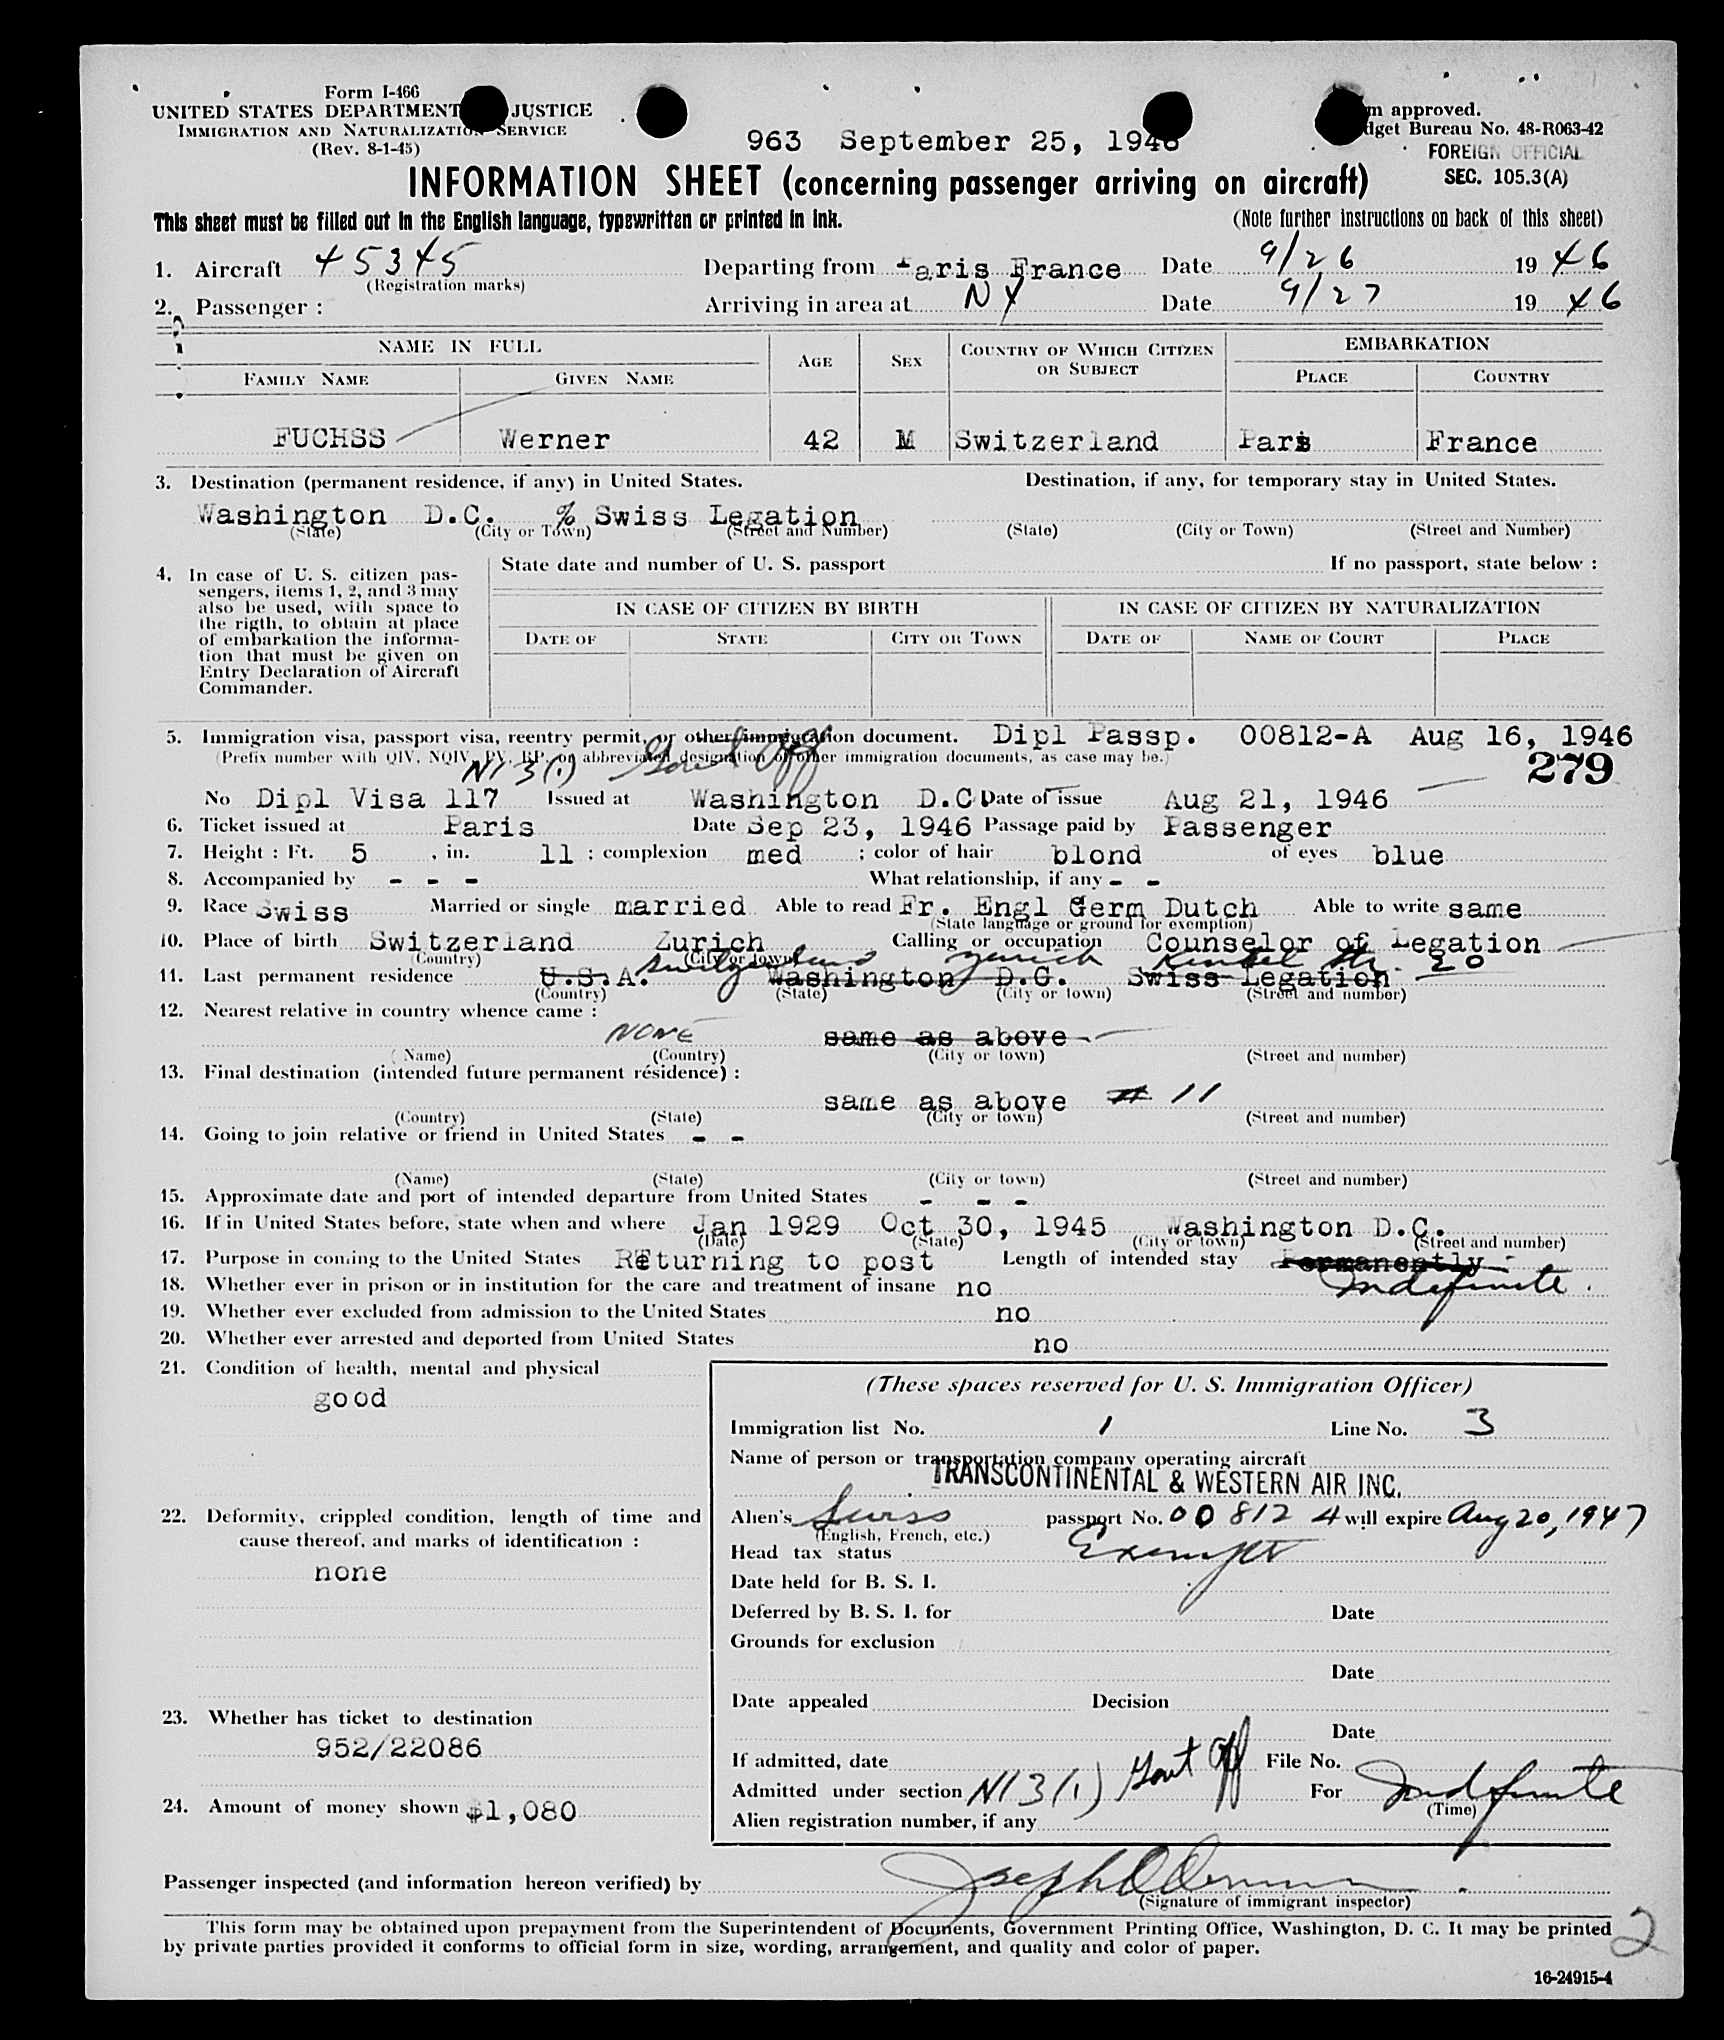 Form I-466
UNITED STATES DEPARTMENT JUSTICE
IMMIGRATION AND NATURALIZATION SERVICE
(Rev. 8-1-45)
963 September 25, 1946
m approved.
dget Bureau No. 48-R063-42
FOREIGN OFFICIAL
SEC. 105.3(A)
INFORMATION SHEET (concerning passenger arriving on aircraft)
This sheet must be filled out in the English language, typewritten or printed in ink. (Note further instructions on back of this sheet)
1. Aircraft 45345 Departing from Paris France Date 9/26 1946
(Registration marks)
2. Passenger : Arriving in area at NY Date 9/27 1946
NAME IN FULL AGE SEX COUNTRY OF WHICH CITIZEN OR SUBJECT EMBARKATION
FAMILY NAME GIVEN NAME PLACE COUNTRY
FUCHSS Werner 42 M Switzerland Paris France
3. Destination (permanent residence, if any) in United States. Destination, if any, for temporary stay in United States.
Washington D.C. % Swiss Legation
(State) (City or Town) (Street and Number) (State) (City or Town) (Street and Number)
4. In case of U. S. citizen pas-
sengers, items 1, 2, and 3 may
also be used, with space to
the rigth, to obtain at place
of embarkation the informa-
tion that must be given on
Entry Declaration of Aircraft
Commander.
State date and number of U. S. passport If no passport, state below :
IN CASE OF CITIZEN BY BIRTH IN CASE OF CITIZEN BY NATURALIZATION
DATE OF STATE CITY OR TOWN DATE OF NAME OF COURT PLACE
5. Immigration visa, passport visa, reentry permit, or other immigration document. Dipl Passp. 00812-A Aug 16, 1946
(Prefix number with QIV, NQIV, PV, RP, or abbreviated designation of other immigration documents, as case may be.)
NI 3(1) Gov't Off 279
No Dipl Visa 117 Issued at Washington D.C. Date of issue Aug 21, 1946
6. Ticket issued at Paris Date Sep 23, 1946 Passage paid by Passenger
7. Height : Ft. 5 , in. 11 ; complexion med ; color of hair blond of eyes blue
8. Accompanied by - - - What relationship, if any - -
9. Race Swiss Married or single married Able to read Fr. Engl Germ Dutch Able to write same
(State language or ground for exemption)
10. Place of birth Switzerland Zurich Calling or occupation Counselor of Legation
(Country) (City or town)
Switzerland Zurich 20
11. Last permanent residence U.S.A. Washington D.C. Swiss Legation
(Country) (State) (City or town) (Street and number)
12. Nearest relative in country whence came :
NONE same as above
(Name) (Country) (City or town) (Street and number)
13. Final destination (intended future permanent résidence) :
same as above # 11
(Country) (State) (City or town) (Street and number)
14. Going to join relative or friend in United States - -
(Name) (State) (City or town) (Street and number)
15. Approximate date and port of intended departure from United States - - -
16. If in United States before, state when and where Jan 1929 Oct 30, 1945 Washington D.C.
(Date) (State) (City or town) (Street and number)
17. Purpose in coming to the United States REturning to post Length of intended stay Permanently -
Indefinite.
18. Whether ever in prison or in institution for the care and treatment of insane no
19. Whether ever excluded from admission to the United States no
20. Whether ever arrested and deported from United States no
21. Condition of health, mental and physical
good
22. Deformity, crippled condition, length of time and
cause thereof, and marks of identification :
none
23. Whether has ticket to destination
952/22086
24. Amount of money shown $1,080
(These spaces reserved for U. S. Immigration Officer)
Immigration list No. 1 Line No. 3
Name of person or transportation company operating aircraft
TRANSCONTINENTAL & WESTERN AIR INC.
Alien's Swiss passport No. 00812 A will expire Aug 20, 1947
(English, French, etc.)
Head tax status Exempt
Date held for B. S. I.
Deferred by B. S. I. for Date
Grounds for exclusion
Date
Date appealed Decision
Date
If admitted, date File No.
Admitted under section NI 3(1) Gov't Off For Indefinite
(Time)
Alien registration number, if any
Passenger inspected (and information hereon verified) by
(Signature of immigrant inspector)
This form may be obtained upon prepayment from the Superintendent of Documents, Government Printing Office, Washington, D. C. It may be printed
by private parties provided it conforms to official form in size, wording, arrangement, and quality and color of paper.
2
16-24915-4